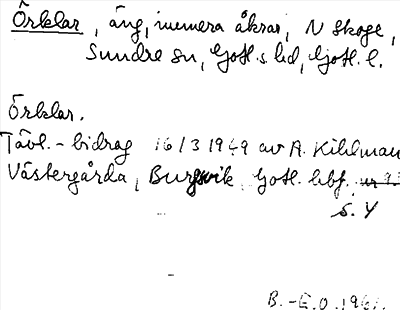 Örklar, äng, numera åkrar, N Skoge,
Sundre sn, Gotl. s. hd, Gotl. l.
Örklar.
Tävl.-bidrag 16/3 1949 av A. Kihlman
Västergårda, Burgsvik, Gotl. hbf.
s. 4
B.-E.O. 196